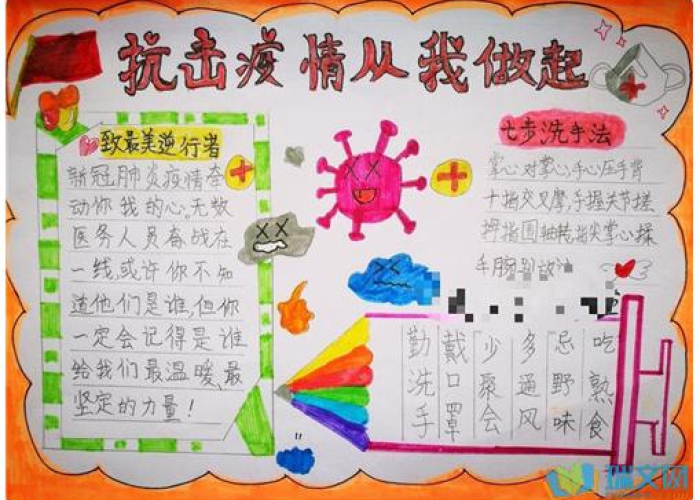 抗击疫情从我做起
致最美逆行者
新冠肺炎疫情牵
动你我的心。无数
医务人员奋战在
一线,或许你不知
道他们是谁,但你
一定会记得是谁
给我们最温暖、最
坚定的力量!
七步洗手法
掌心对掌心,手心压手背
十指交叉摩,手握关节搓
拇指围轴转,指尖掌心揉
手腕别放过
勤洗手
戴口罩
少聚会
多通风
忌野味
吃熟食
瑞文网